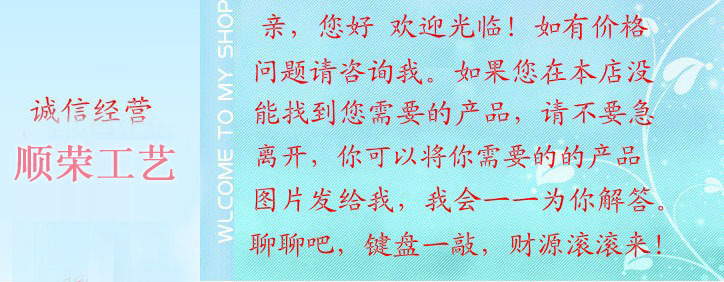 诚信经营
顺荣工艺
WLCOME TO MY SHOP
亲，您好 欢迎光临！如有价格
问题请咨询我。如果您在本店没
能找到您需要的产品，请不要急
离开，你可以将你需要的的产品
图片发给我，我会一一为你解答。
聊聊吧，键盘一敲，财源滚滚来！